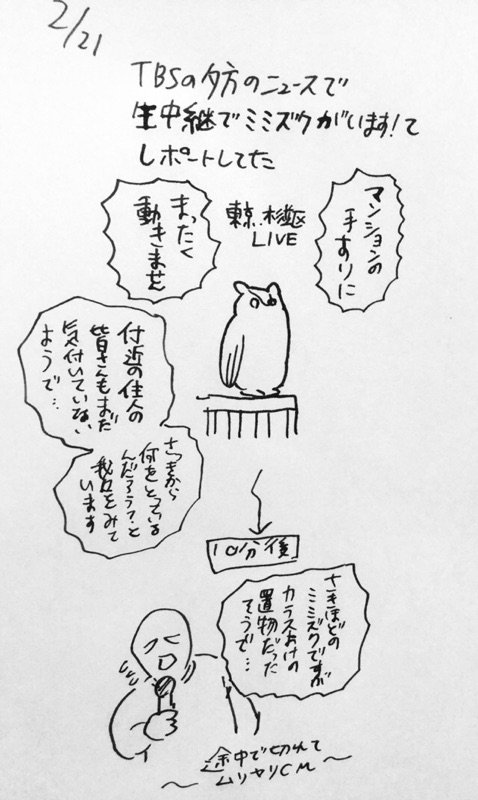 2/21
TBSの夕方のニュースで
生中継でミミズクがいます!て
レポートしてた
マンションの
手すりに
東京.杉並区
LIVE
まったく
動きません
付近の住人の
皆さんもまだ
気付いていない
ようで…
さっきから
何をとっている
んだろう?と
我々をみて
います
10分後
さきほどの
ミミズクですが
カラスよけの
置物だった
そうで…
途中で切れて
ムリヤリCM